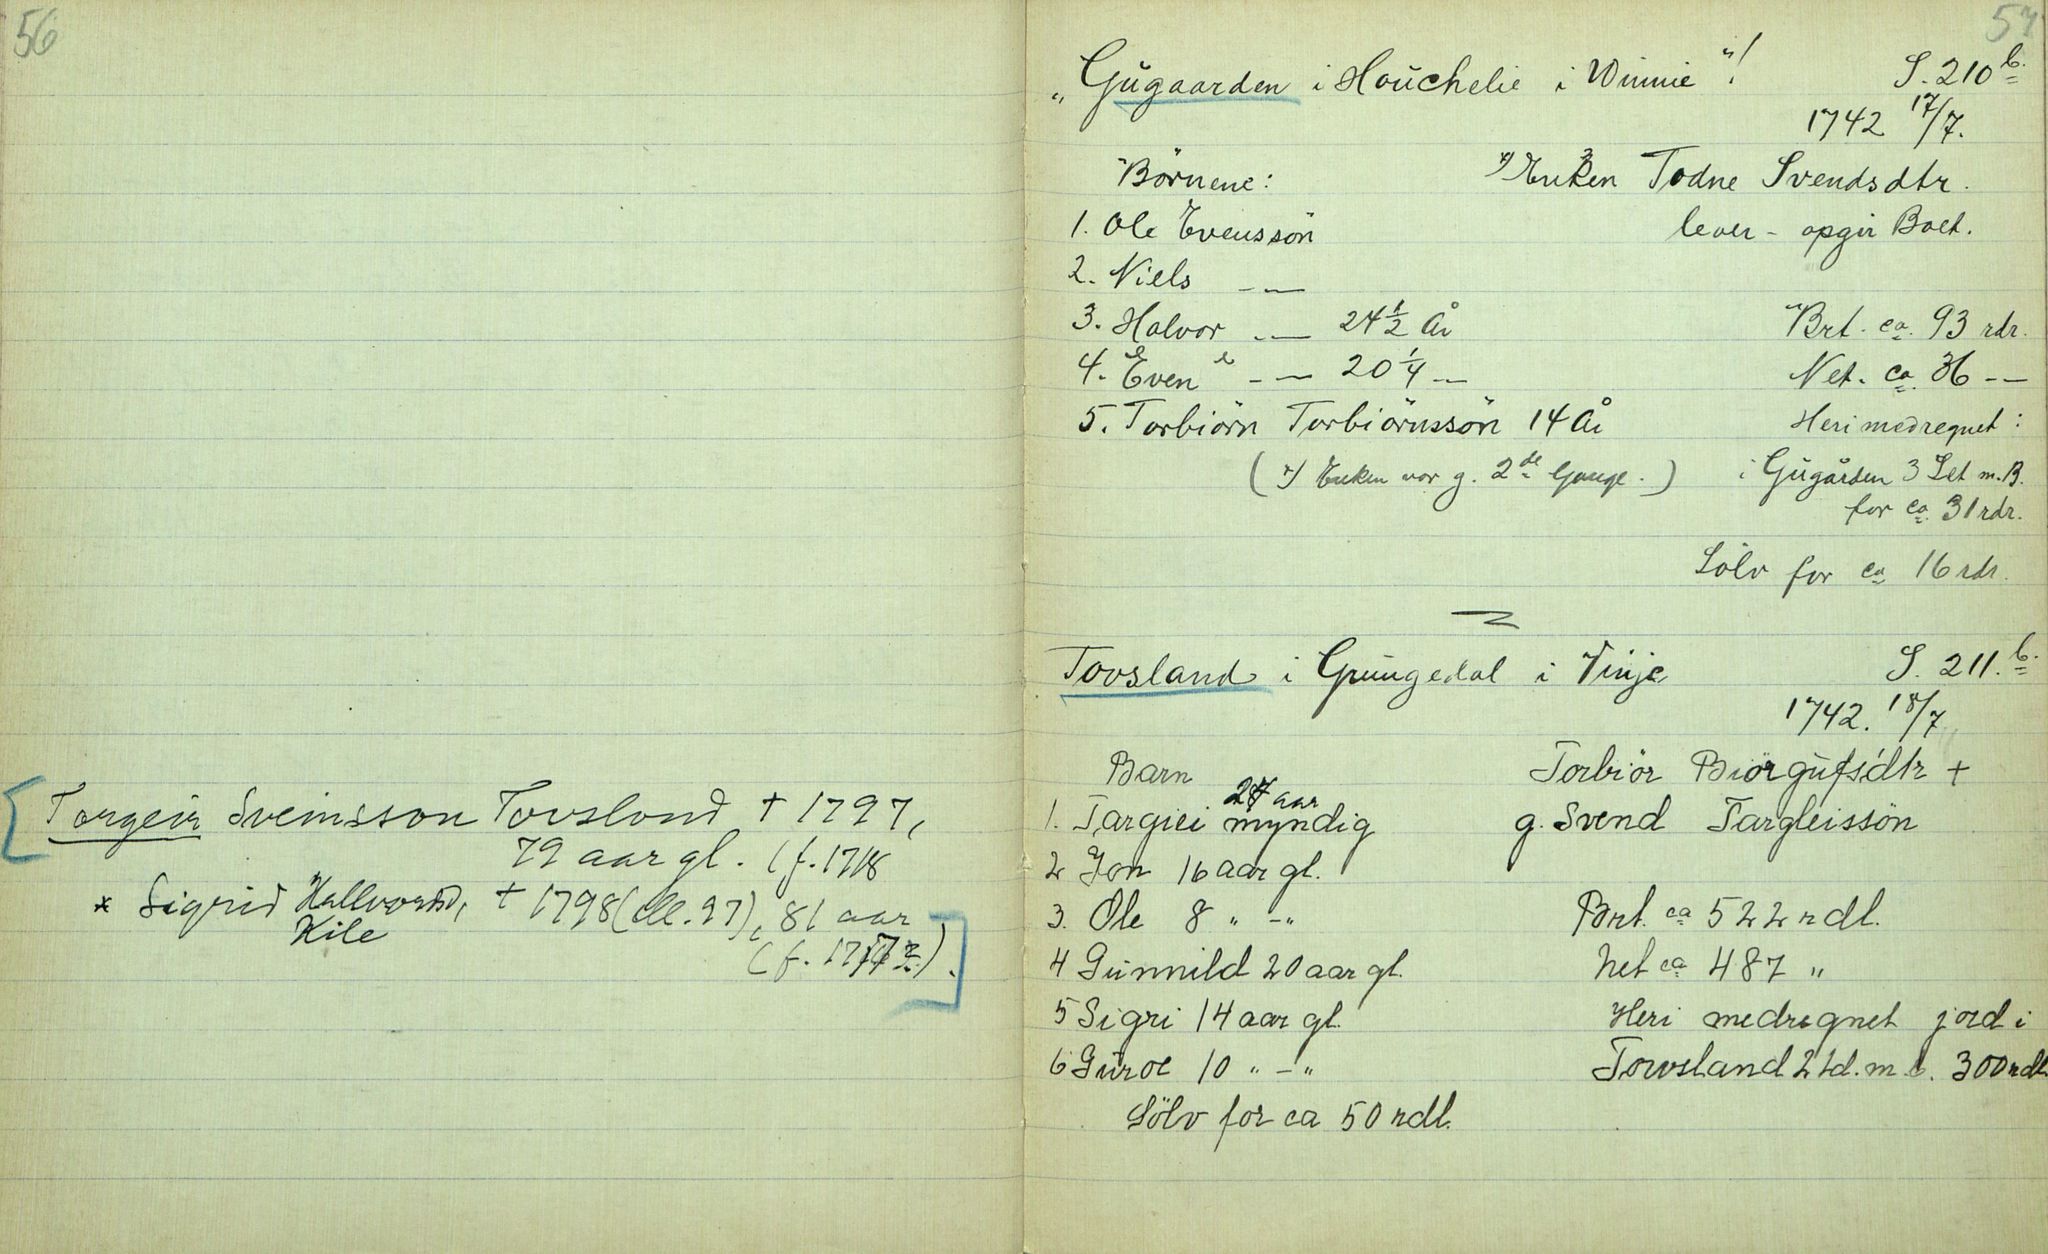 56
[Torgeir Sveinsson Tovsland † 1797,
79 aar gl. (f. 1718
* Sigrid Hallvorsd,
Kile
† 1798 (ell. 97), 81 aar
(f. 1717).]
57
„Gŭgaarden i Hoŭchelie i Winnie"! S. 210 b.
1742 17/7.
Börnene:
x) Enken Todne Svendsdtr.
1. Ole Evenssön
lever - opgir Boet.
2. Niels -—
3. Halvor -— 24 1/2 År
Brt. ca. 93 rdr.
4. Even -— 20 1/4 —
Net. ca. 36 -—
5. Torbiörn Torbiörnssön 14 År
Heri medregnet:
(x) Enken var g. 2de Gange.)
i Gŭgården 3 Set m.B.
for ca. 31 rdr.
Sölv for ca 16 rdr.
Tovsland i Grŭngedal i Vinje S. 211. b.
1742. 18/7
Barn
Torbiör Biörgŭfsdtr +
27 aar
1. Targiei myndig
g. Svend Targleissön
2 Jon 16 aar gl.
3. Ole 8 " -"
Brt. ca 522 rdl.
4 Gŭnnild 20 aar gl.
Net ca 487 "
5 Sigri 14 aar gl.
Heri medregnet jord i
6 Gŭroe 10 " -"
Towsland 2 Ld. m. b. 300 rdl.
Sölv for ca 50 rdl.